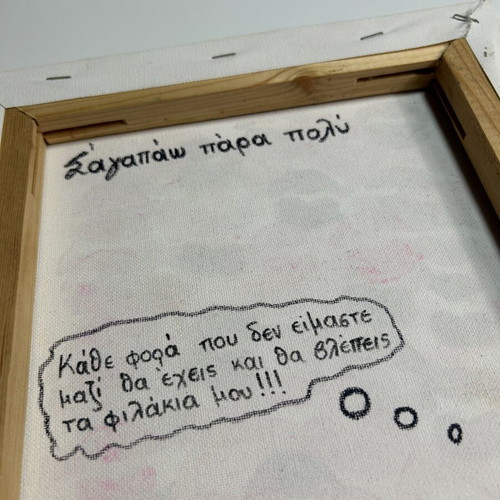 Σ'αγαπάω πάρα πολύ
Κάθε φορά που δεν είμαστε
μαζί θα έχεις και θα βλέπεις
τα φιλάκια μου!!!